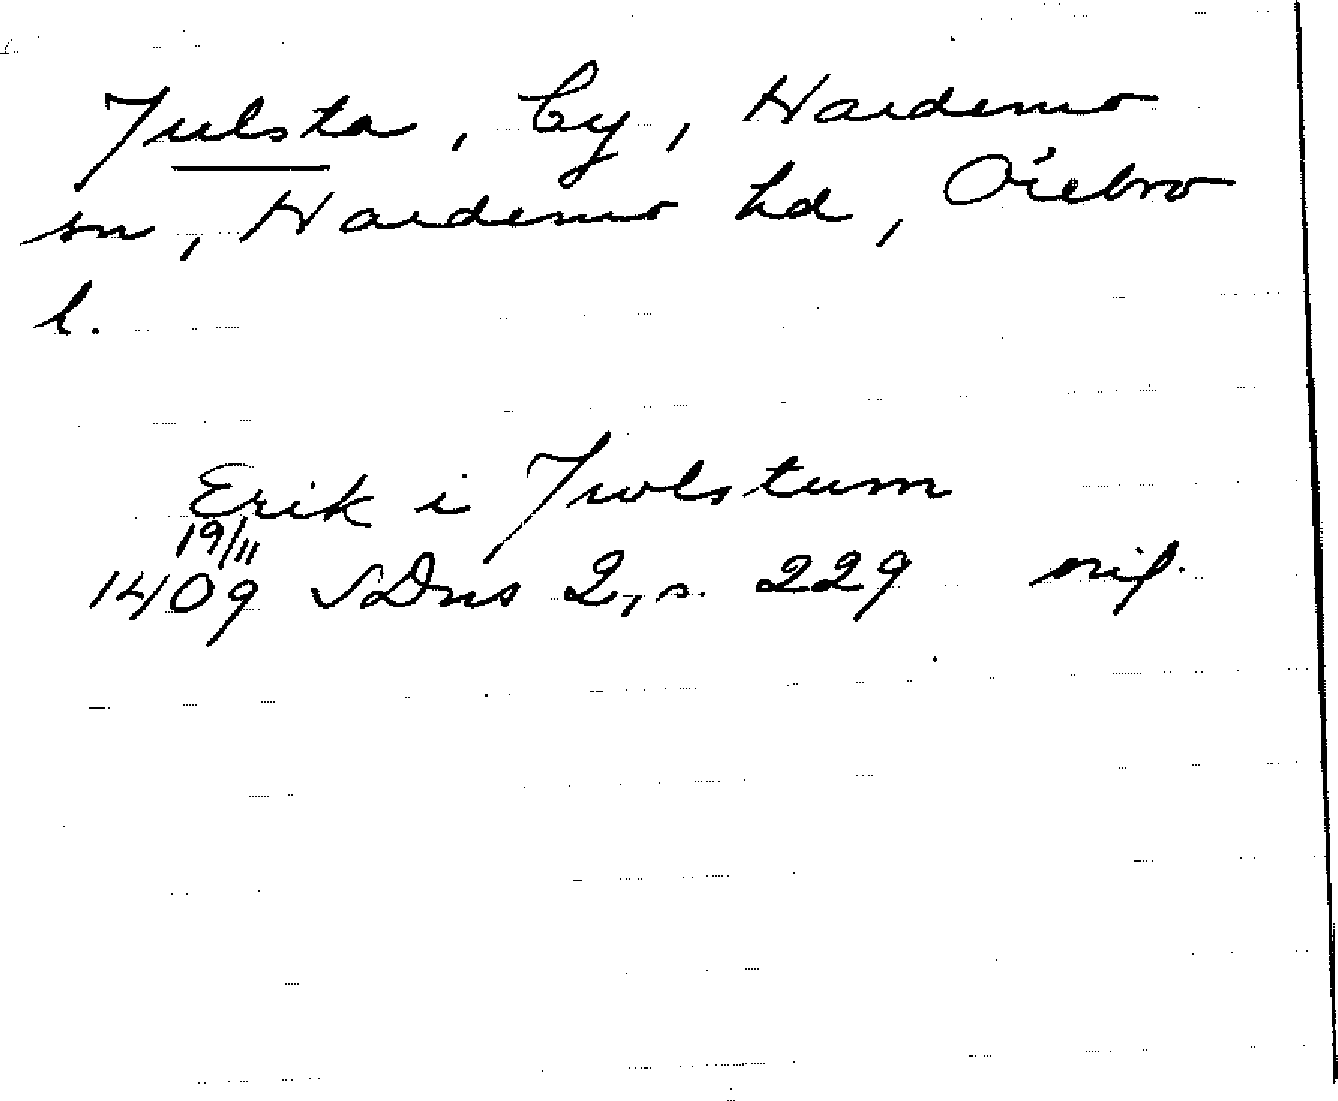 Julsta, by, Hardemo
sn, Hardemo hd, Örebro
l.
Erik i Jwlstum
19/11
1409 SDns 2, s. 229 orig.